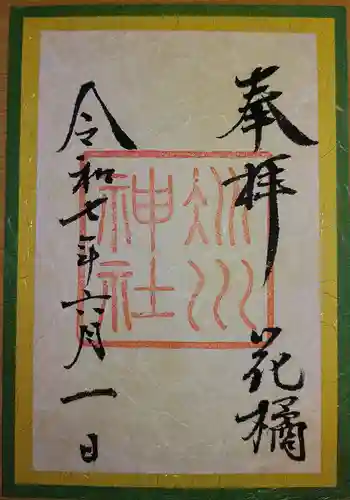 奉拝
花橘
冰川
神社
令和七年六月一日